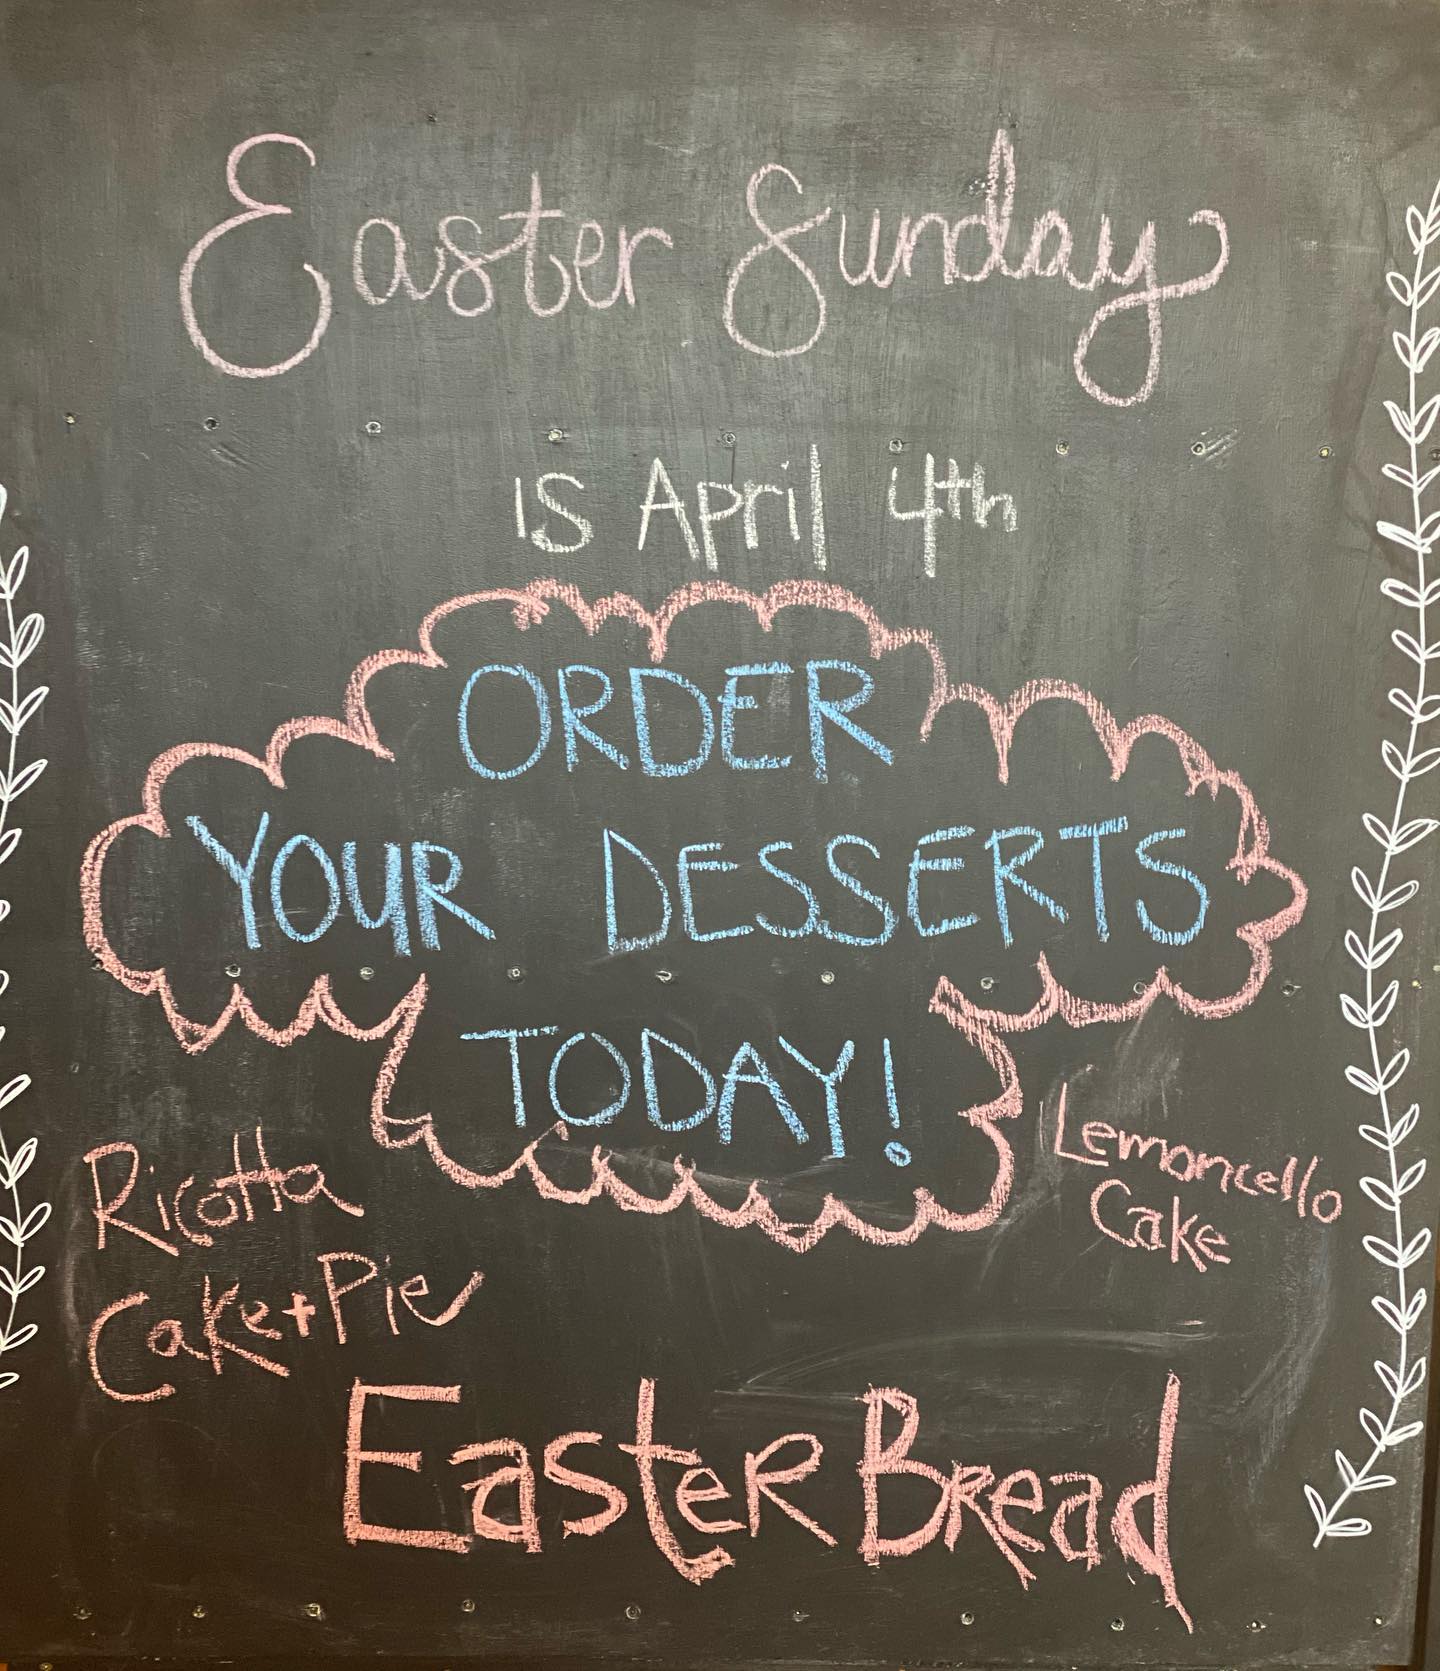 Easter Sunday
is April 4th
ORDER
YOUR DESSERTS
TODAY!
Ricotta
Cake + Pie
Lemoncello
Cake
Easter Bread